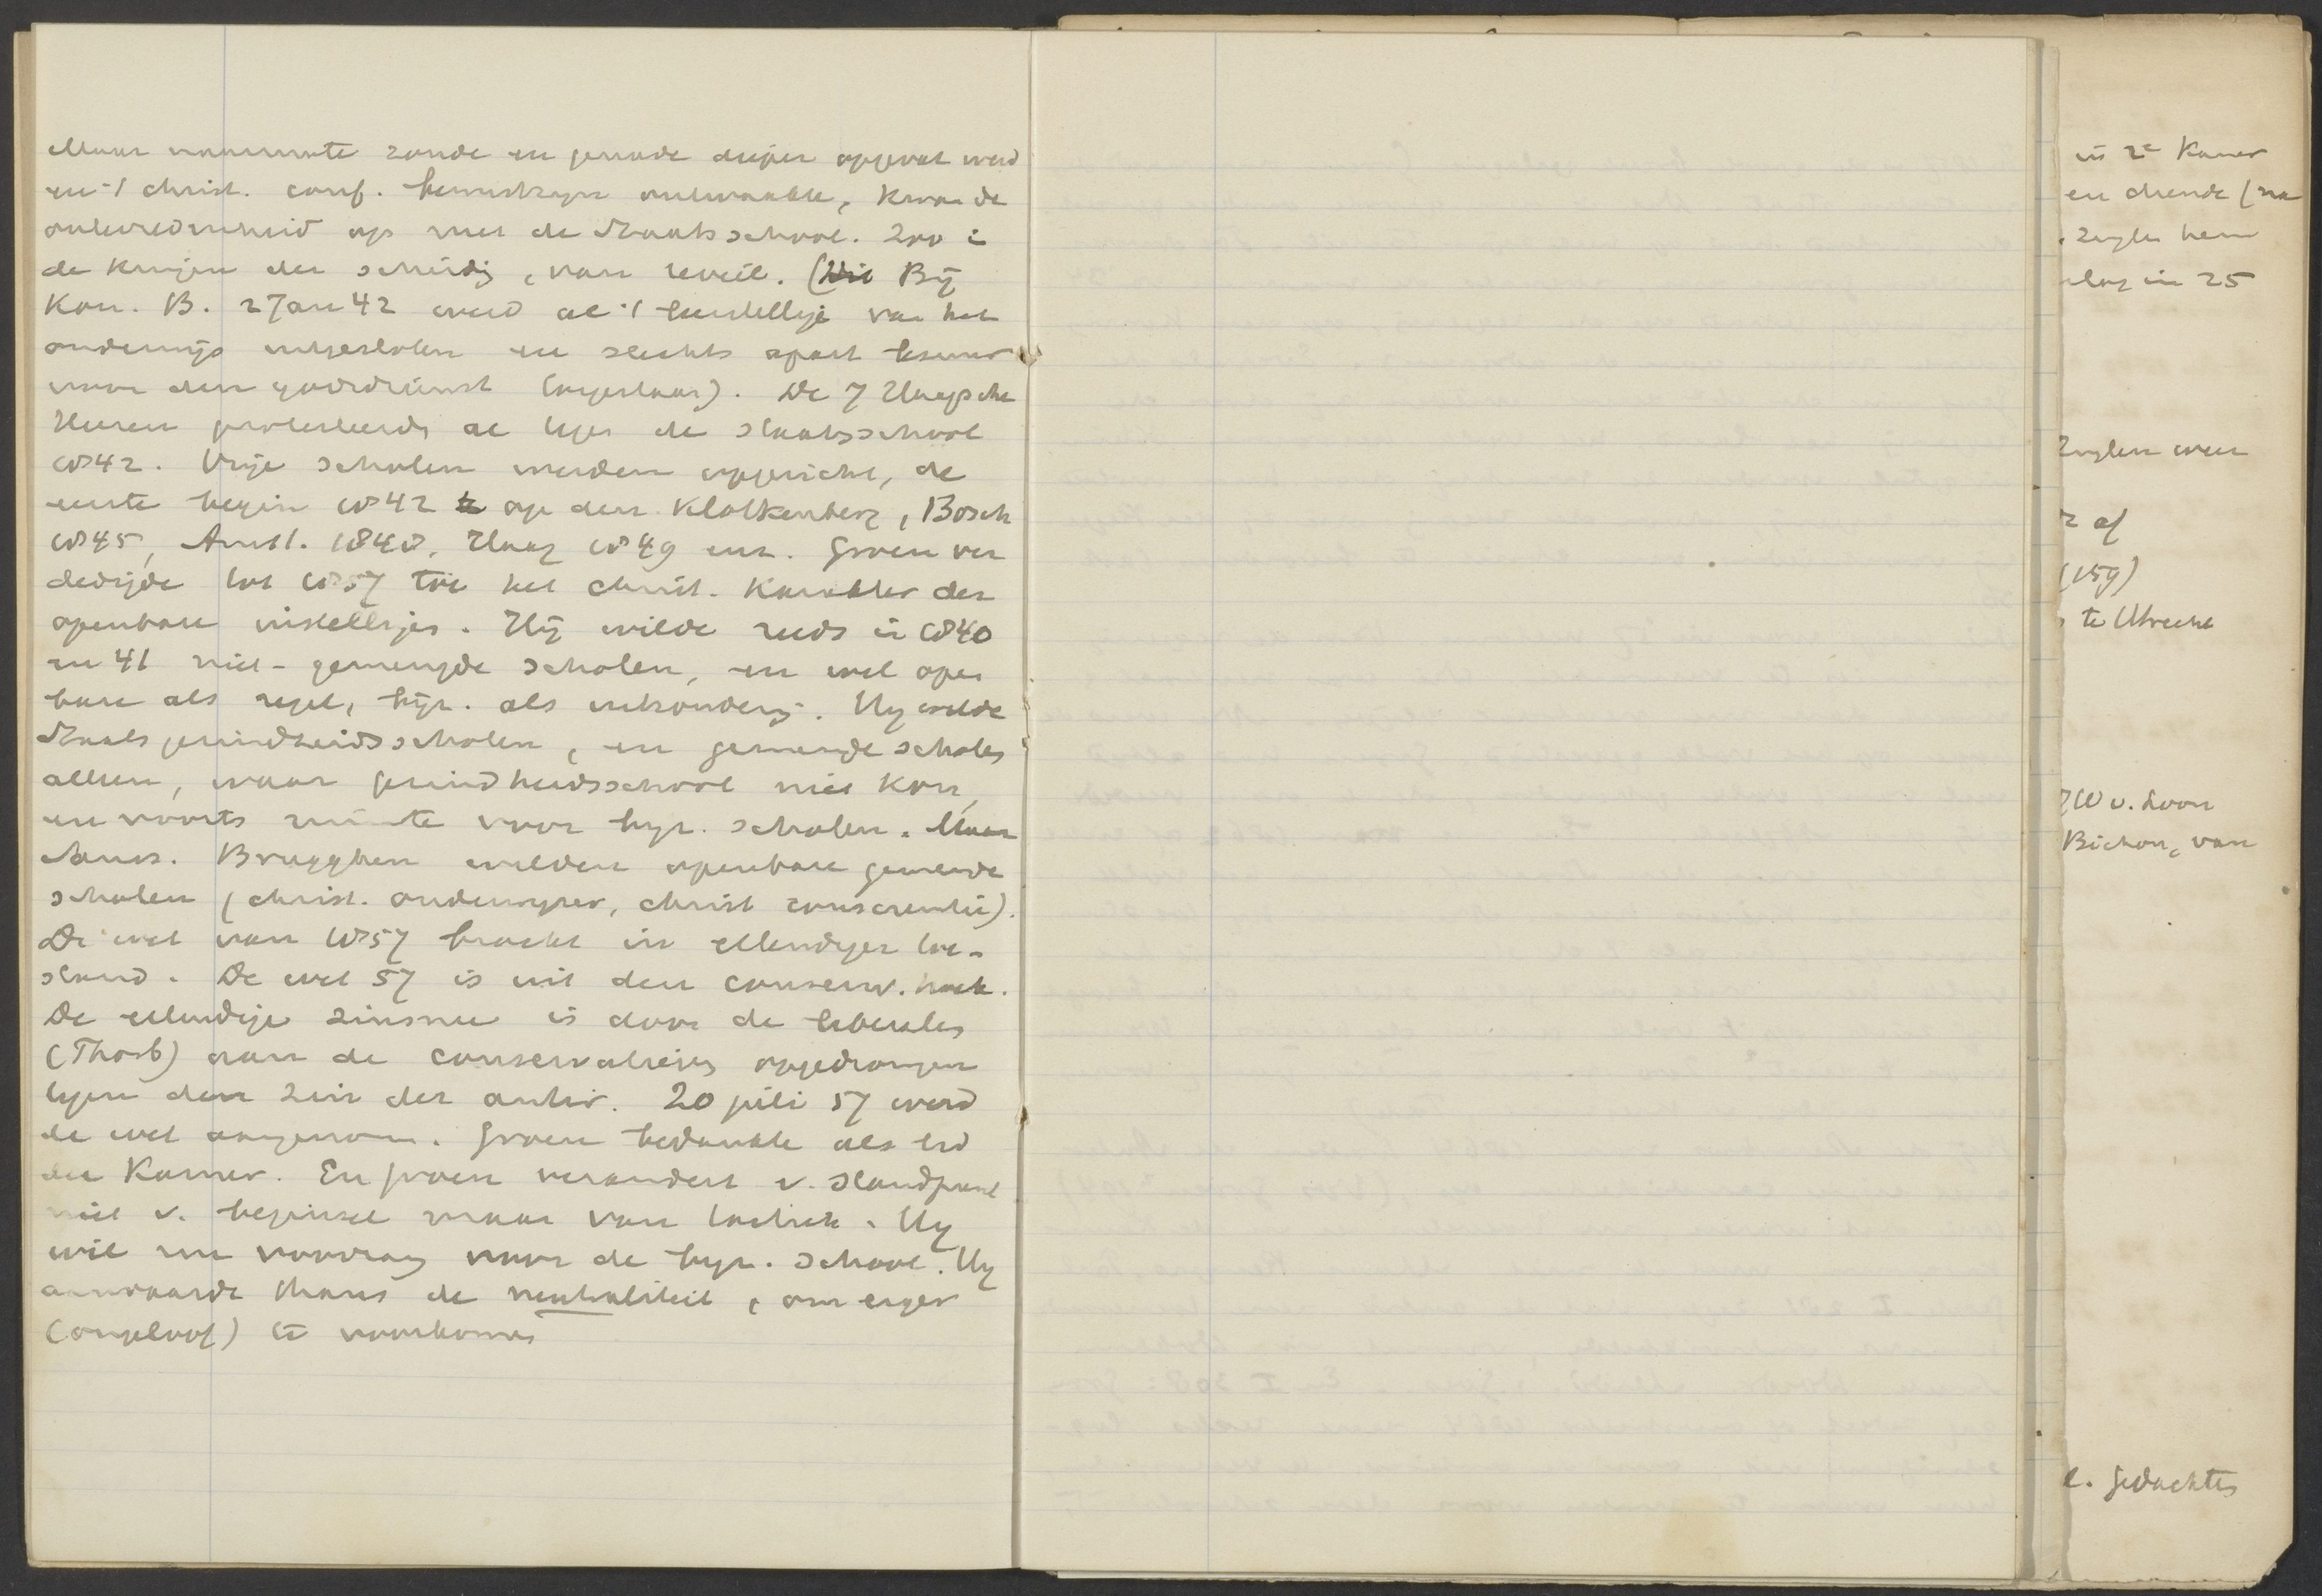 Maar naarmate zonde en genade dieper opgevat werd
en 't christ. conf. bewustzijn ontwaakte, kwam de
ontevredenheid op met de Staatsschool. Zoo i
de kringen der scheidg, van reveil. (Bij
Kon. B. 2 Jan 42 werd al 't leerstellige van het
onderwijs uitgesloten en slechts apart
voor den godsdienst toegestaan). De 7 Haagsche
Heeren protesteerdn al tegen de staatsschool
1842. Vrije scholen werden opgericht, de
eerste begin 1842 op den Klokkenberg, Bosch
1845, Amst. 1848, Haag 1849 enz. Groen ver
dedigde tot 1857 toe het christ. karakter der
openbare instellgen. Hij wilde reeds in 1840
en 41 niet-gemengde scholen, en wel open
bare als regel, bijz. als uitzonderg. Hij wilde
Staatsgezindheidsscholen, en gemengde scholen
alleen, waar gezindheidsschool niet kon,
en voorts ruimte voor bijz. scholen. Maar
Brugghen wilden openbare gemengde
scholen (christ. onderwijzer, christ conscientie).
De wet van 1857 bracht in ellendigen toe-
stand. De wet 57 is uit den conserv. hoek.
De ellendige zinsnee is door de liberalen
(Thorb) aan de conservatieven opgedrongen
tegen den zin der antir. 20 juli 57 werd
de wet aangenom. Groen bedankte als lid
der Kamer. En Groen verandert v. standpunt
niet v. beginsel maar van tactiek. Hij
wil nu voorrang voor de bijz. school. Hij
aanvaarde thans de neutraliteit, om erger
(ongeloof) te voorkomen
in 2e Kamer
en diende (na
zeglen hem
slag in 25
zeglen weer
r af
(159)
te Utrecht
W v. Loon
Bichon, van
l. gedachten